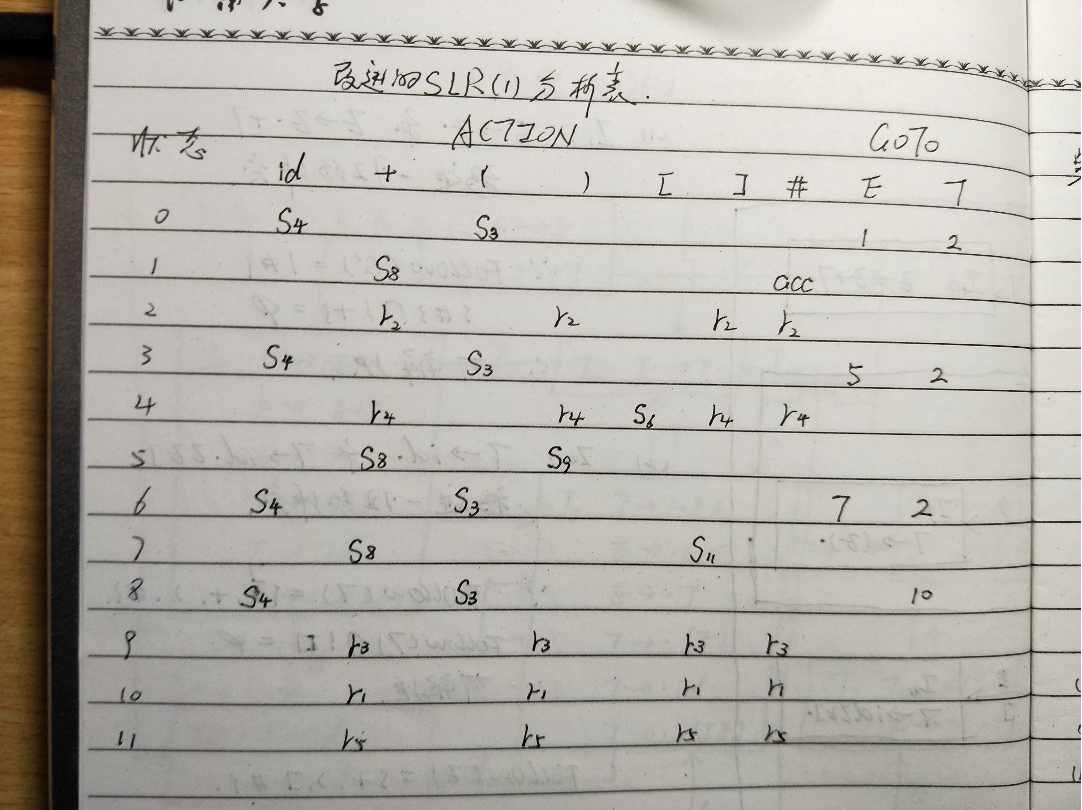 改进的SLR(1)分析表.
状态 ACTION GOTO
id + ( ) [ ] # E T
0 S4 S3 1 2
1 S8 acc
2 r2 r2 r2 r2
3 S4 S3 5 2
4 r4 r4 S6 r4 r4
5 S8 S9
6 S4 S3 7 2
7 S8 S11
8 S4 S3 10
9 r3 r3 r3 r3
10 r1 r1 r1 r1
11 r5 r5 r5 r5